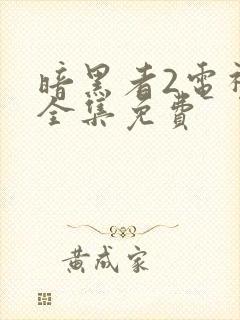 暗黑者2电视
全集免费
黄成家